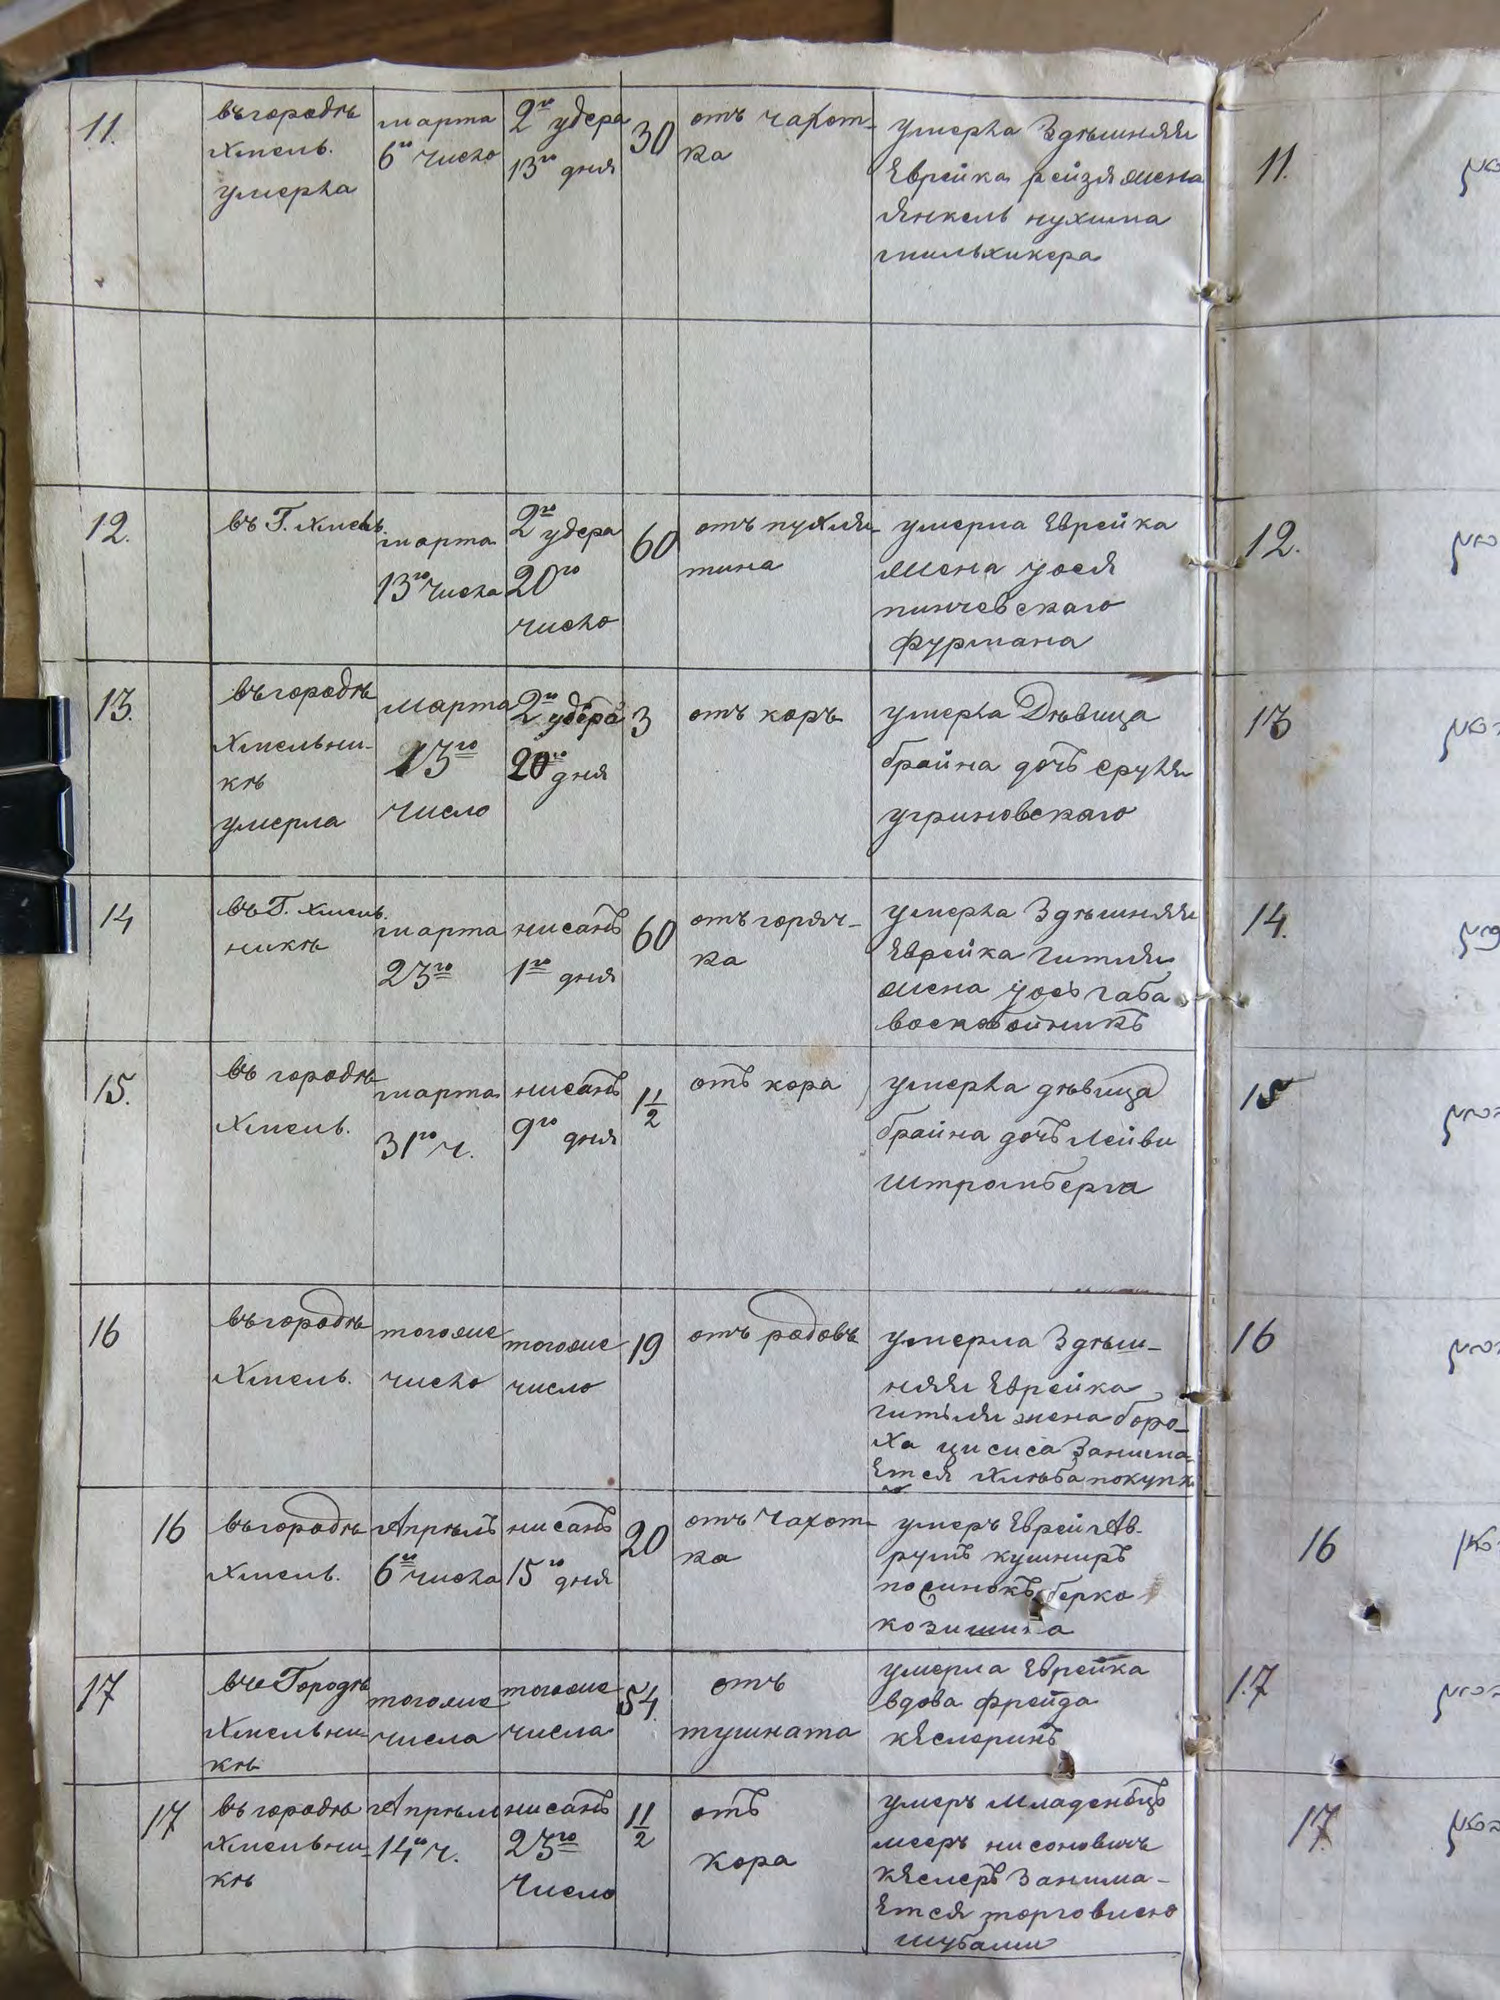 11.
въ городѣ
Хмель.
умерла
марта
6го число
2го удера
13го дня
30
отъ чахот-
ка
умерла Здѣшняя
Еврейка рейзя жена
Янкель нухима
мильхикера
11.
12.
въ Г. Хмель.
марта
13го числа
2го удера
20го
число
60
отъ пухля-
тина
умерла Еврейка
жена уося
пинчевскаго
фурмана
12.
13.
въ городѣ
Хмельни-
кѣ
умерла
марта
13го
число
2го удера
20го дня
3
отъ коръ
умерла Дѣвица
брайна дочь сруля
угриновскаго
13
14
въ Г. Хмель.
никѣ
марта
23го
нисанъ
1го дня
60
отъ горяч-
ка
умерла Здѣшняя
Еврейка Гитля
жена уось габа
воскобойникъ
14.
15.
въ городѣ
Хмель.
марта
31го ч.
нисанъ
9го дня
1 1/2
отъ кора
умерла дѣвица
брайна дочь Лейви
Штромберга
15
16
въ городѣ
Хмель.
тогоже
число
тогоже
число
19
отъ родовъ
умерла Здѣш-
няя Еврейка
гитля жена боро-
ха цисиса Занима-
Ется Хлѣба покупкѣ
16
16
въ городѣ
Хмель.
Апрѣль
6го числа
нисанъ
15го дня
20
отъ Чахот-
ка
умеръ Еврей Ав-
румъ кушниръ
посинокъ берко
козишина
16
17
въ Городѣ
Хмельни-
кѣ
тогоже
числа
тогоже
числа
54.
отъ
тушната
умерла Еврейка
вдова фрейда
кеслеринъ
17
17
въ городѣ
Хмельни-
кѣ
Апрѣля
14го ч.
нисанъ
23го
Число
1 1/2
отъ
кора
умеръ младенецъ
мееръ нисоновичъ
кеслеръ Занима-
Ется торговлею
шубами
17.